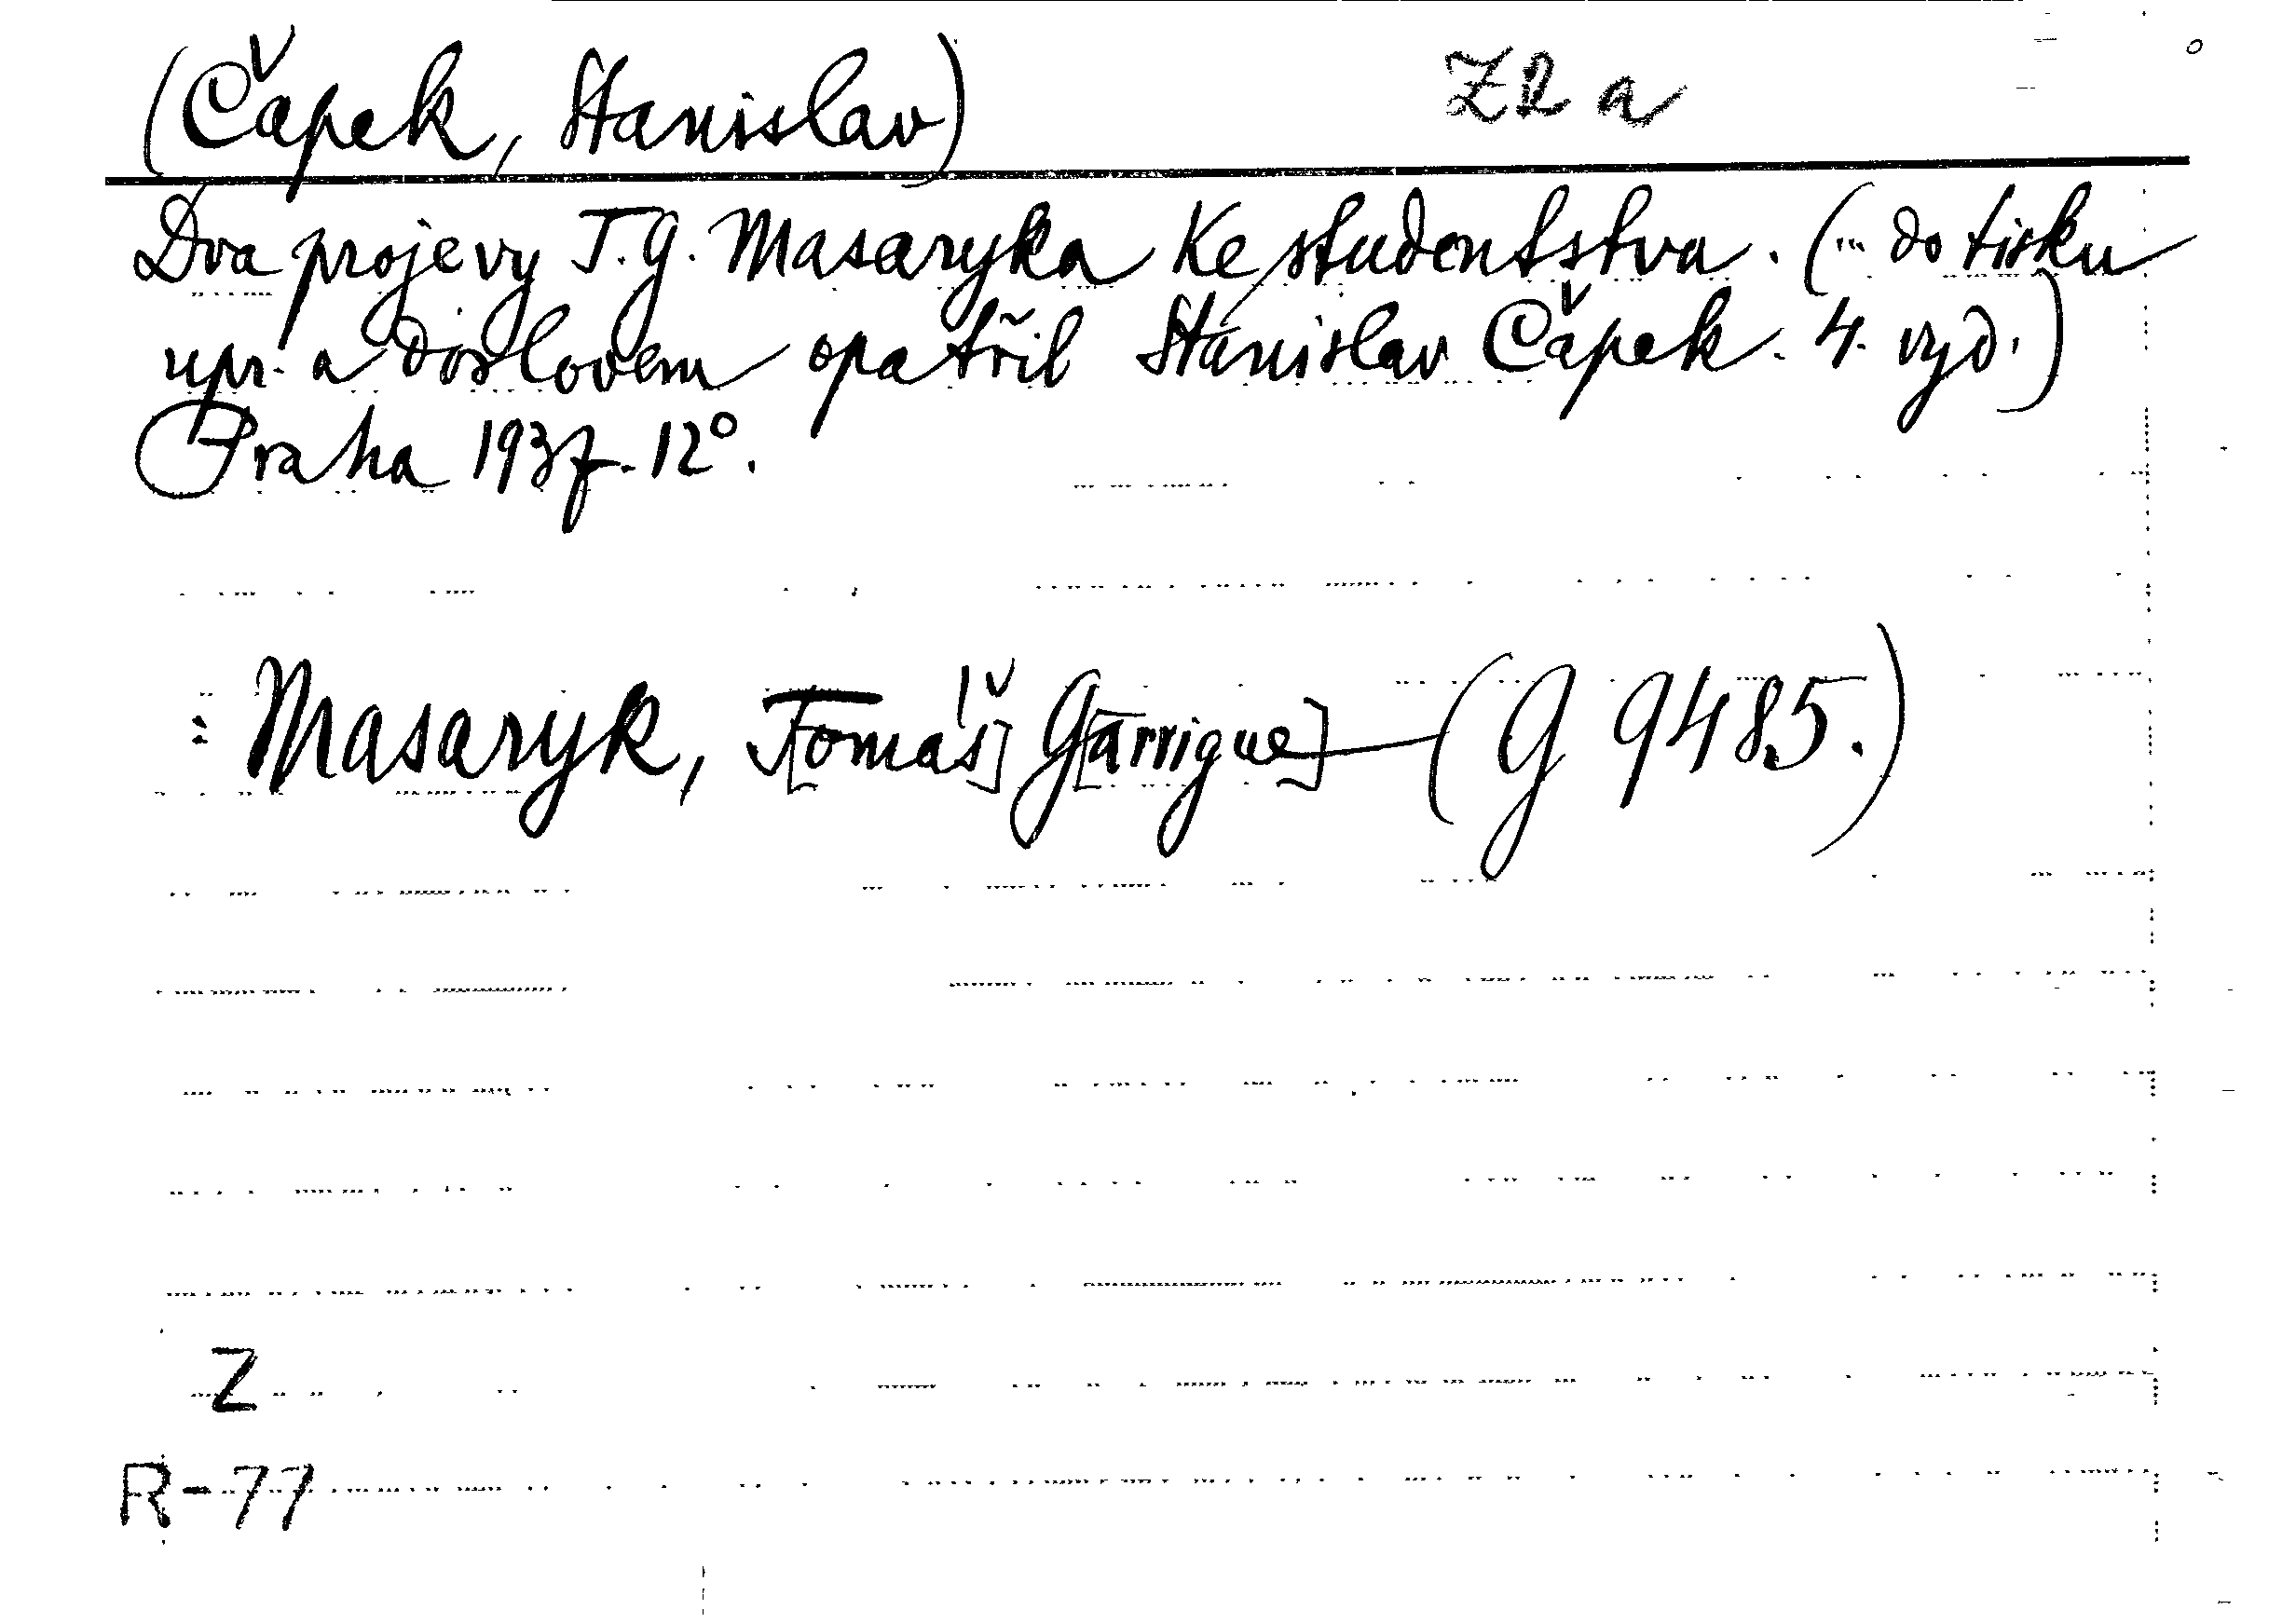 (Čapek, Stanislav) ZR a
Dva projevy T. G. Masaryka ke studentstvu. (... do tisku
upr. a doslovem opatřil Stanislav Čapek. 4. vyd.)
Praha 1937. 12°.
: Masaryk, T[omáš] G[arrigue] — (G 9485.)
Z
R-77